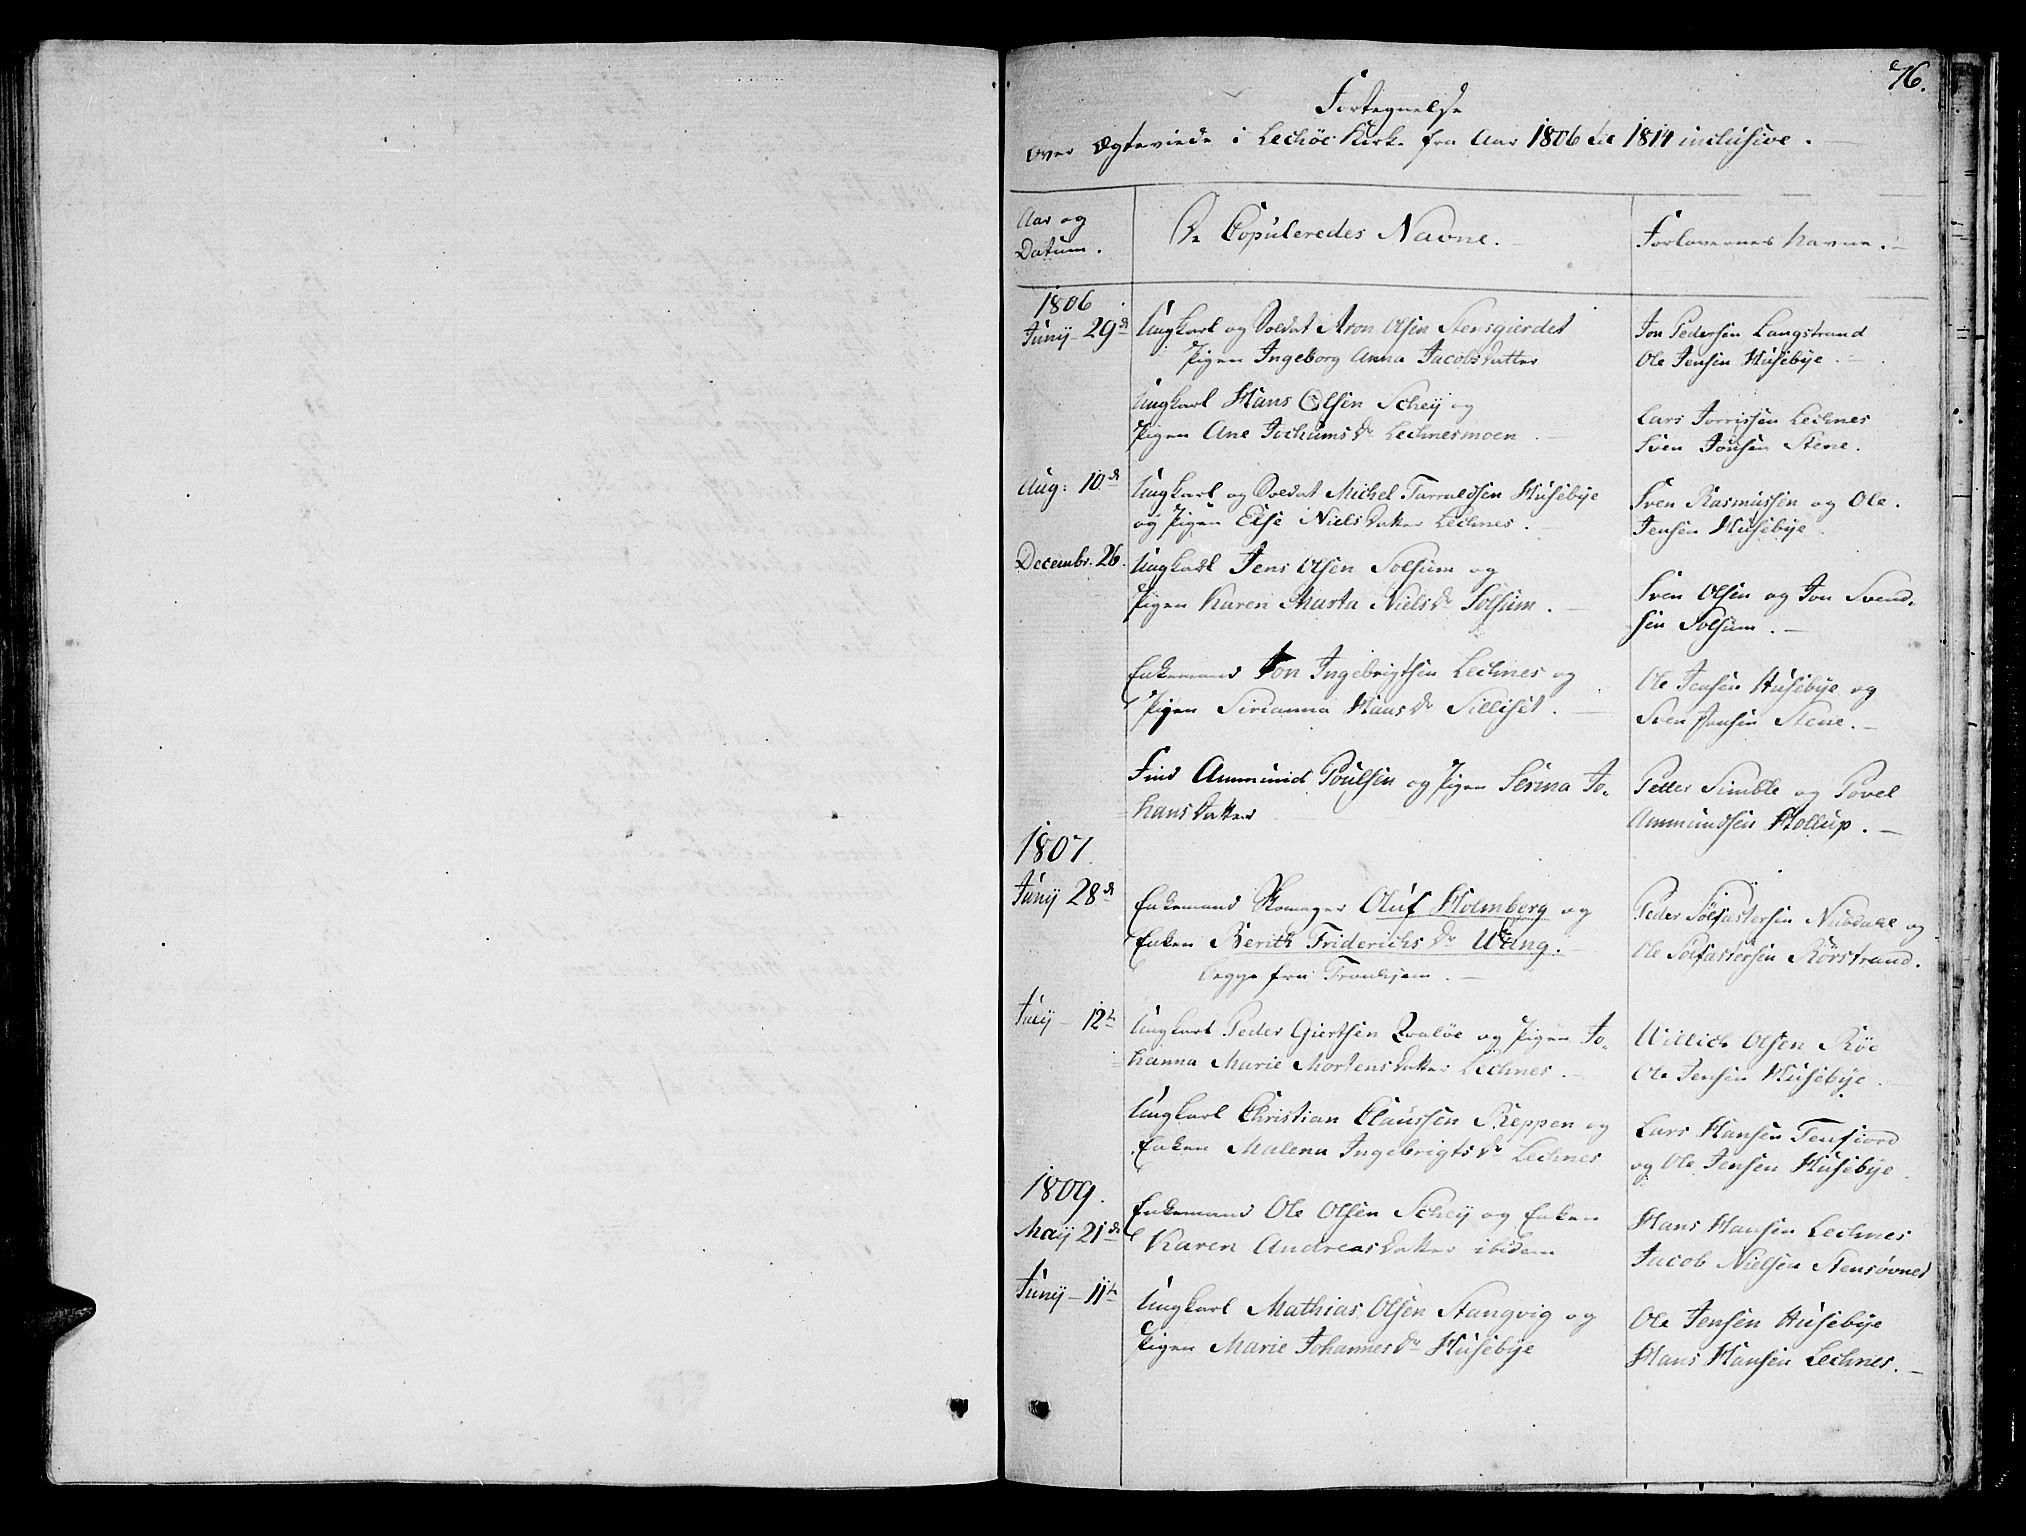 76.
Fortegnelse
over Ægteviede i Lechöe Kirke fra Aar 1806 til 1814 inclusive.
Aar og
Datum.
De Copuleredes Navne.
Forlovernes Navne.
1806
Junij 29de
Ungkarl og Soldat Aron Olsen Stensgierdet
Pigen Ingeborg Anna Jacobsdatter
Jon Pedersen Langstrand
Ole Jensen Husebye.
Ungkarl Hans Olsen Scheij og
Pigen Ane Jochumsdr Lechnesmoen.
Lars Jorrissen Lechnes
Sven Jonsen Stene.
Aug: 10de
Ungkarl og Soldat Michel Tarraldsen Husebye
og Pigen Else Nielsdatter Lechnes.
Sven Rasmussen og Ole
Jensen Husebye
Decembr. 26.
Ungkarl Jens Olsen Solsum og
Pigen Karen Marta Nielsdr Solsum.
Sven Olsen og Jon Svend-
sen Solsum.
Enkemand Jon Ingebrigtsen Lechnes og
Pigen Sirianna Hansdr Silliset.
Ole Jensen Husebye og
Sven Jonsen Stene.
Find Ammund Poulsen og Pigen Serina Jo-
hansdatter
Petter Simble og Povel
Ammundsen Hollup.
1807.
Junij 28de
Enkemand Skomager Oluf Holmberg og
Enken Berith Friderichsdr Wang.
begge fra Tronhjem.
Peder Solfastersen og
Ole Solfastersen Rörstrand.
Julij 12te
Ungkarl Peder Giertsen Qvalöe og Pigen Jo-
hanna Marie Mortensdatter Lechnes.
Willich Olsen Röe
Ole Jensen Husebye.
Ungkarl Christian Claussen Reppen og
Enken Malena Ingebrigtsdr Lechnes
Lars Hansen Tenfiord
og Ole Jensen Husebye
1809.
Maij 21de
Enkemand Ole Olsen Scheij og Enken
Karen Andreasdatter ibidem
Hans Hansen Lechnes
Jacob Nielsen Stensövnes
Junij 11te
Ungkarl Mathias Olsen Stangvig og
Pigen Marie Johannesdr Husebye
Ole Jensen Husebye
Hans Hansen Lechnes.